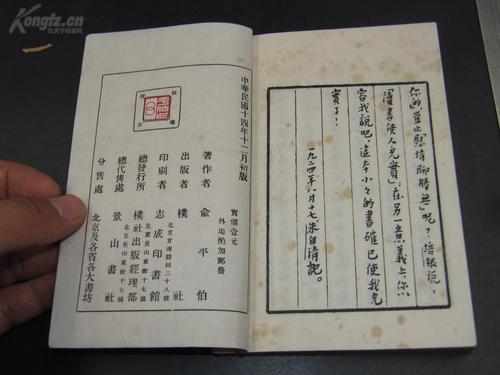 Kongfz.cn
你的,豈止「慰情聊勝無」呢?培根說,
「讀書使人充實」;在另一意義上,你
容我說吧,這本小小的書確已使我充
實了!
一九二四年八月十七,朱自清記。
中華民國十四年十二月初版
實價壹元
外埠酌加郵費
著作者 俞平伯
出版者 樸社
二十八號
印刷者 志成印書館
北京景山東街十七號
總發行所 樸社出版經理部
北京景山東街十七號
總代售處 景山書社
分售處 北京及各省各大書坊